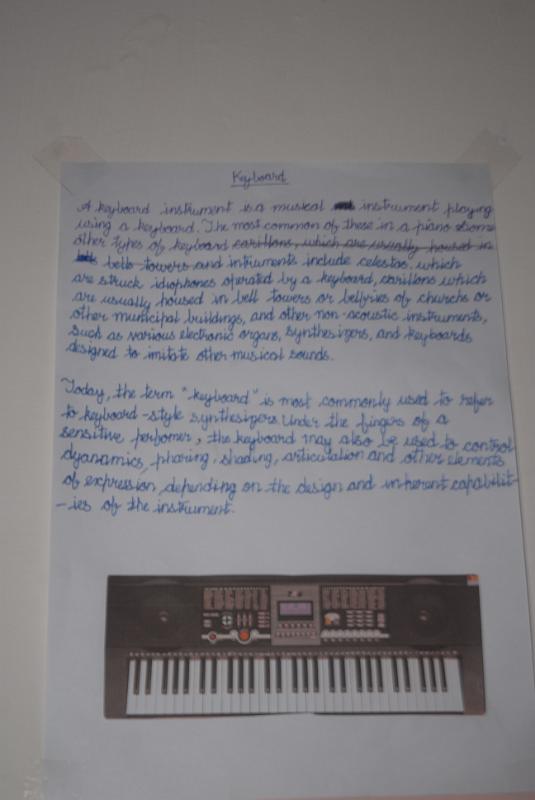 Keyboard
A keyboard instrument is a musical instrument playing
using a keyboard. The most common of these in a piano some
other types of keyboard carillons, which are usually housed in
bells towers and intruments include celestas, which
are struck idiophones operated by a keyboard, carillons which
are usually housed in bell towers or belfries of churchs or
other municipal buildings, and other non-acoustic instruments,
such as various electronic organs, synthesizers, and keyboards
designed to imitate other musical sounds.
Today, the term "keyboard" is most commonly used to refer
to keyboard-style synthesizers. Under the fingers of a
sensitive performer, the keyboard may also be used to control
dyanamics, pharing, shading, articulation and other elements
of expression, depending on the design and inherent capabilit-
-ies of the instrument.